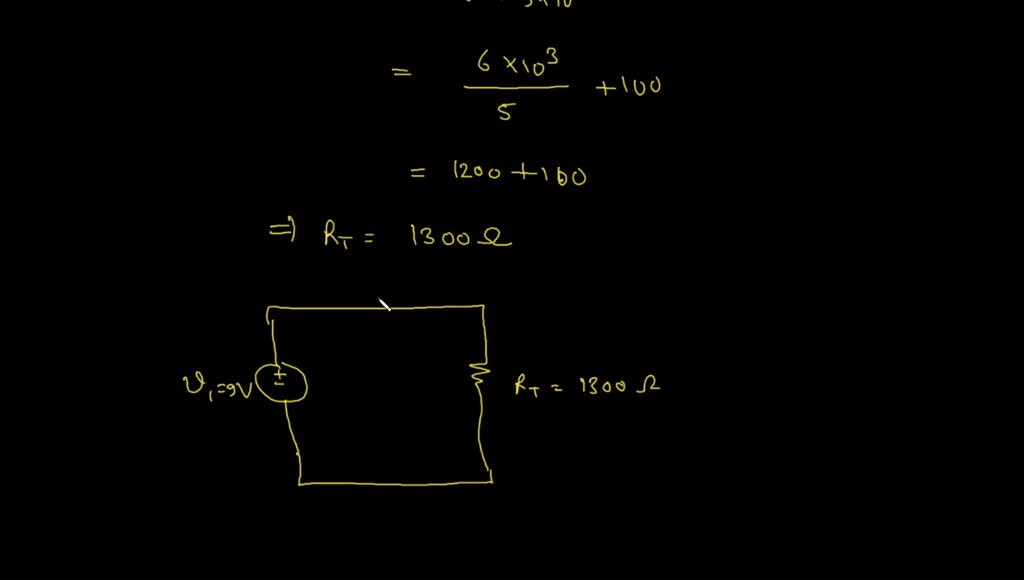 = 6 × 10³ / 5 + 100
= 1200 + 100
⇒ R_T = 1300 Ω
V₁ = 9V
+
−
R_T = 1300 Ω